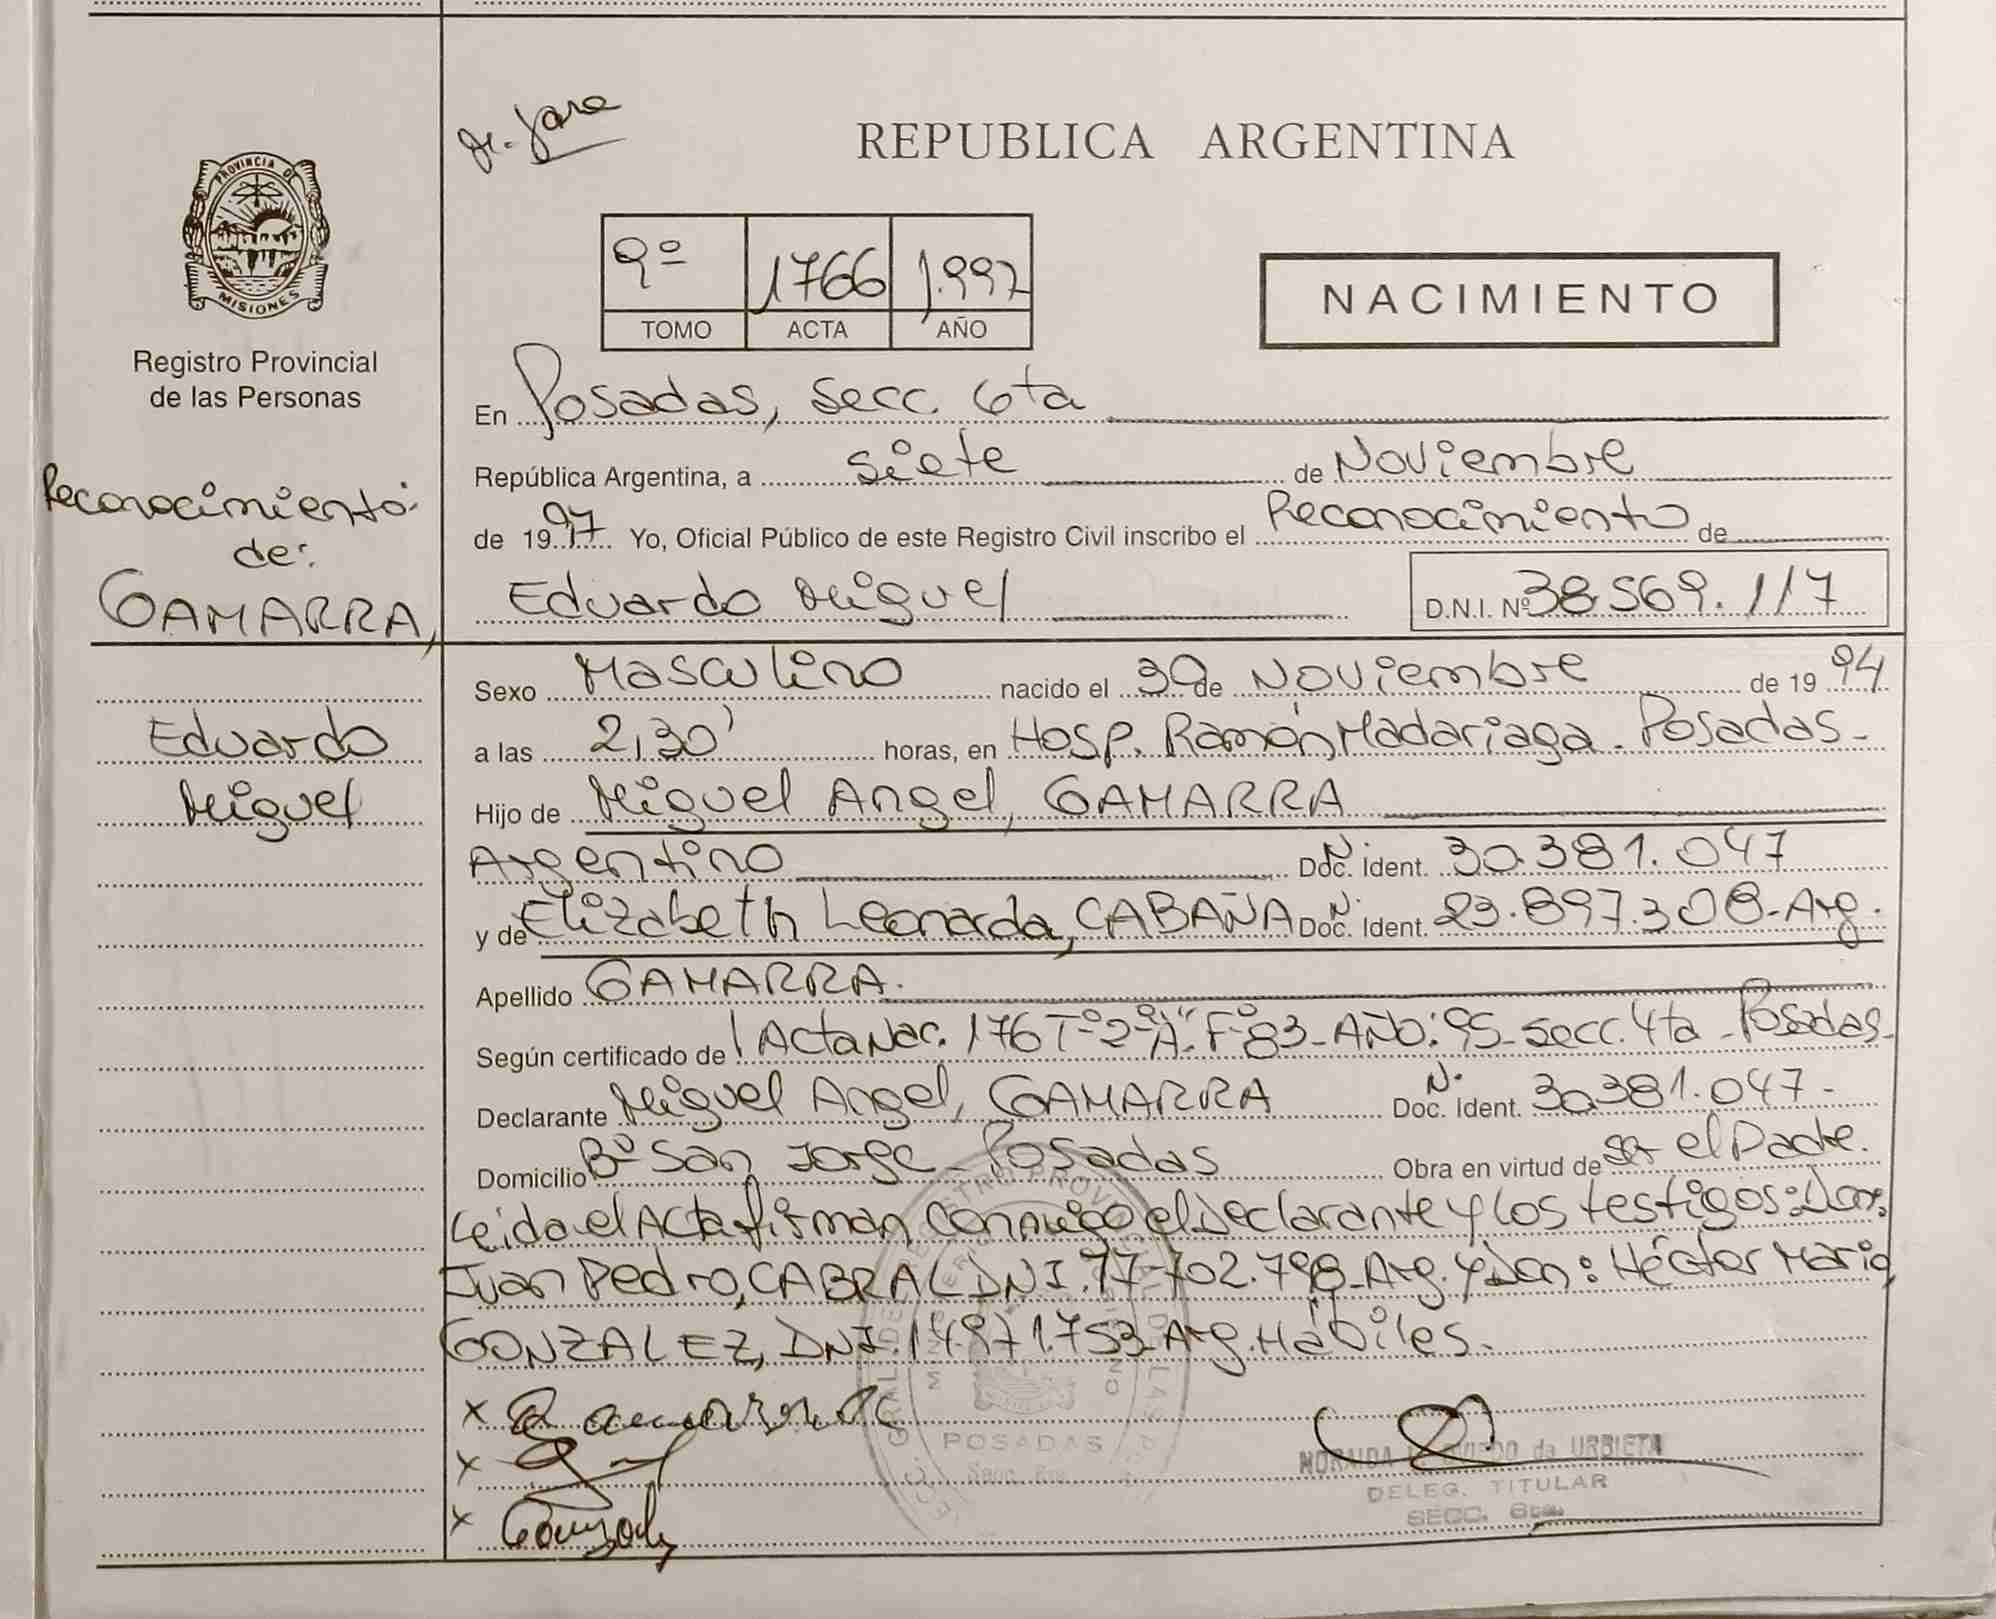 REPUBLICA ARGENTINA
PROVINCIA DE
MISIONES
Registro Provincial
de las Personas
9º 1766 1.997
TOMO ACTA AÑO
NACIMIENTO
En Posadas, Secc. 6ta
República Argentina, a siete de Noviembre
de 1997 Yo, Oficial Público de este Registro Civil inscribo el Reconocimiento de
Eduardo Miguel D.N.I. Nº 38.569.117
Reconocimiento
de:
GAMARRA,
Eduardo
Miguel
Sexo Masculino nacido el 30 de Noviembre de 1994
a las 2,30' horas, en Hosp. Ramón Madariaga. Posadas-
Hijo de Miguel Angel, GAMARRA
Argentino Doc. Ident. N. 30.381.047
y de Elizabeth Leonarda, CABAÑA Doc. Ident. N. 23.897.308-Arg.
Apellido GAMARRA.
Según certificado de Acta Nac. 176 Tº 2º "A" Fº 83- AÑO: 95- Secc. 4ta - Posadas-
Declarante Miguel Angel, GAMARRA Doc. Ident. N. 30.381.047-
Domicilio Bº San Jorge - Posadas Obra en virtud de ser el Padre.
Leida el Acta firman conmigo el Declarante y los testigos: Don:
Juan Pedro, CABRAL DNI. Arg. y Don: Héctor Mario,
GONZALEZ, DNI. 14.971.753-Arg. Hábiles.
POSADAS
de URBIETA
DELEG. TITULAR
SECC. 6ta